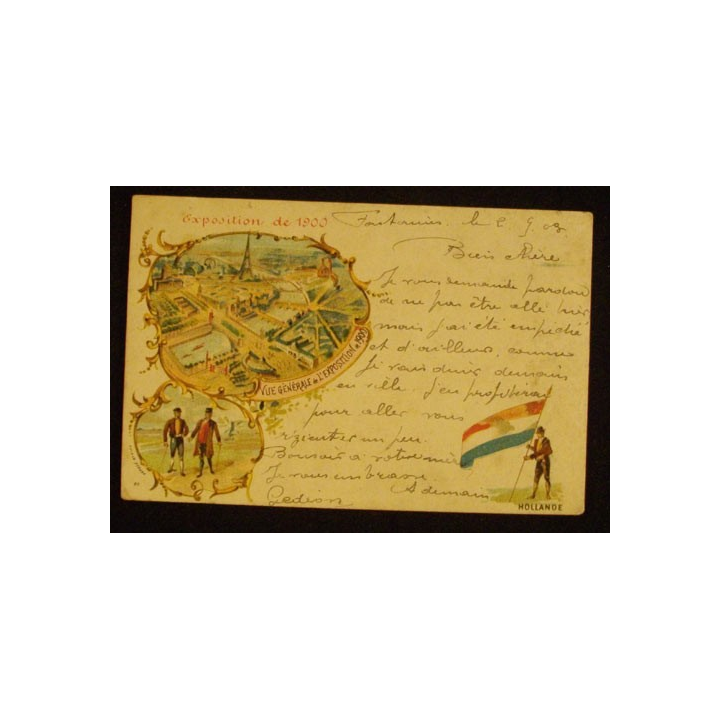 Exposition de 1900
le 2 9 03
Bien chère
Je vous demande pardon
de ne pas être allé hier
mais j'ai été empêché
et d'ailleurs, comme
Je vais demain
en ville, j'en profiterai
pour aller vous
un peu.
Bonsoir à votre mère
Je vous embrasse
A demain
Gedeon
VUE GÉNÉRALE DE L'EXPOSITION DE 1900
HOLLANDE